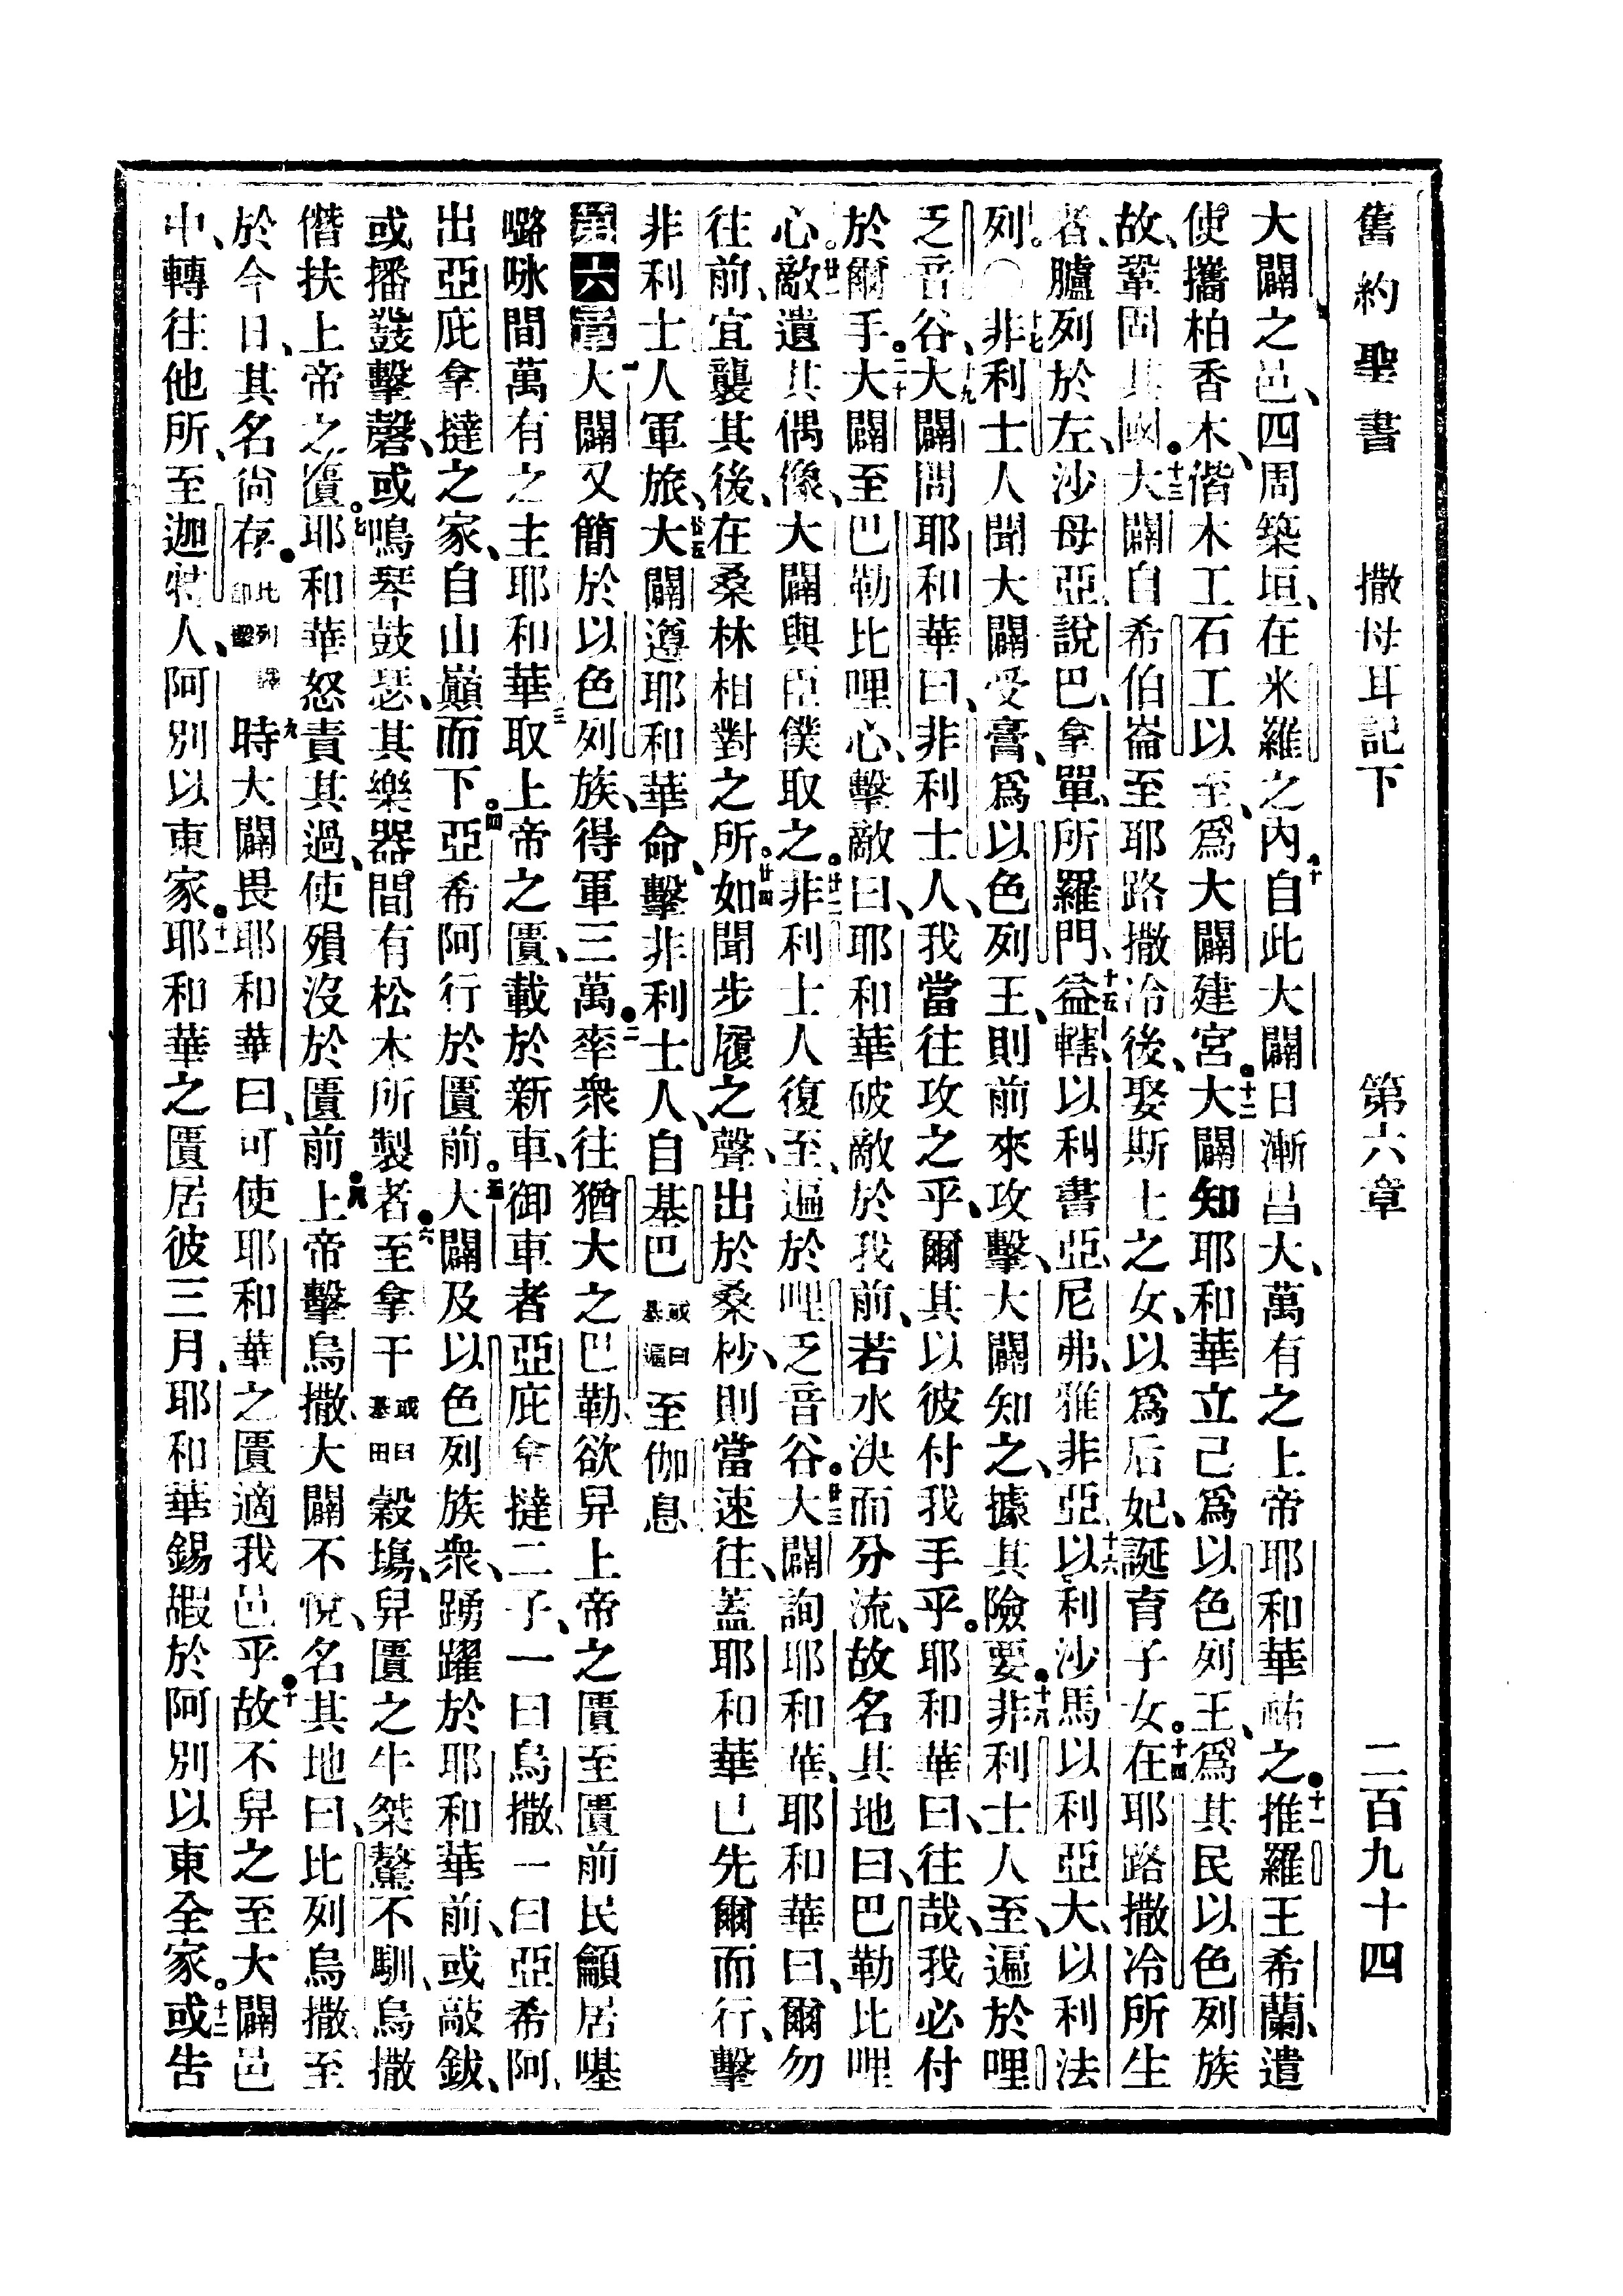 舊約聖書 撒母耳記下 第六章 二百九十四
大闢之邑、四周築垣、在米羅之內、十自此大闢日漸昌大、萬有之上帝耶和華祐之。十一推羅王希蘭、遣
使攜柏香木、偕木工石工以至、爲大闢建宮。十二大闢知耶和華立己爲以色列王、爲其民以色列族
故、鞏固其國。十三大闢自希伯崙至耶路撒冷後、娶斯土之女、以爲后妃、誕育子女。十四在耶路撒冷所生
者、臚列於左、沙母亞、說巴、拿單、所羅門、十五益轄、以利書亞、尼弗、雅非亞、十六以利沙馬、以利亞大、以利法
列。○十七非利士人聞大闢受膏、爲以色列王、則前來攻擊、大闢知之、據其險要。十八非利士人至、遍於哩
乏音谷、十九大闢問耶和華曰、非利士人、我當往攻之乎、爾其以彼付我手乎。耶和華曰、往哉、我必付
於爾手。二十大闢至巴勒比哩心、擊敵曰、耶和華破敵於我前、若水決而分流、故名其地曰、巴勒比哩
心。廿一敵遺其偶像、大闢與臣僕取之。廿二非利士人復至、遍於哩乏音谷。廿三大闢詢耶和華、耶和華曰、爾勿
往前、宜襲其後、在桑林相對之所。廿四如聞步履之聲、出於桑杪、則當速往、蓋耶和華已先爾而行、擊
非利士人軍旅、廿五大闢遵耶和華命、擊非利士人、自基巴或曰基遍至伽息
第六章 一大闢又簡於以色列族、得軍三萬。二率衆往猶大之巴勒、欲舁上帝之匱、至匱前、民籲居𠼻
㗉咏間萬有之主耶和華、三取上帝之匱、載於新車、御車者亞庇拿撻二子、一曰烏撒、一曰亞希阿、
出亞庇拿撻之家、自山巔而下。四亞希阿行於匱前。五大闢及以色列族衆、踴躍於耶和華前、或敲鈸、
或播鼗擊磬、或鳴琴鼓瑟、其樂器間有松木所製者。六至拿干或曰基田穀塲、舁匱之牛桀驁不馴、烏撒
僭扶上帝之匱。七耶和華怒責其過、使殞沒於匱前。八上帝擊烏撒、大闢不悅、名其地曰、比列烏撒、至
於今日、其名尙存。比列譯卽擊九時大闢畏耶和華曰、可使耶和華之匱適我邑乎。十故不舁之至大闢邑
中、轉往他所、至迦特人、阿別以東家。十一耶和華之匱居彼三月、耶和華錫嘏於阿別以東全家。十二或告